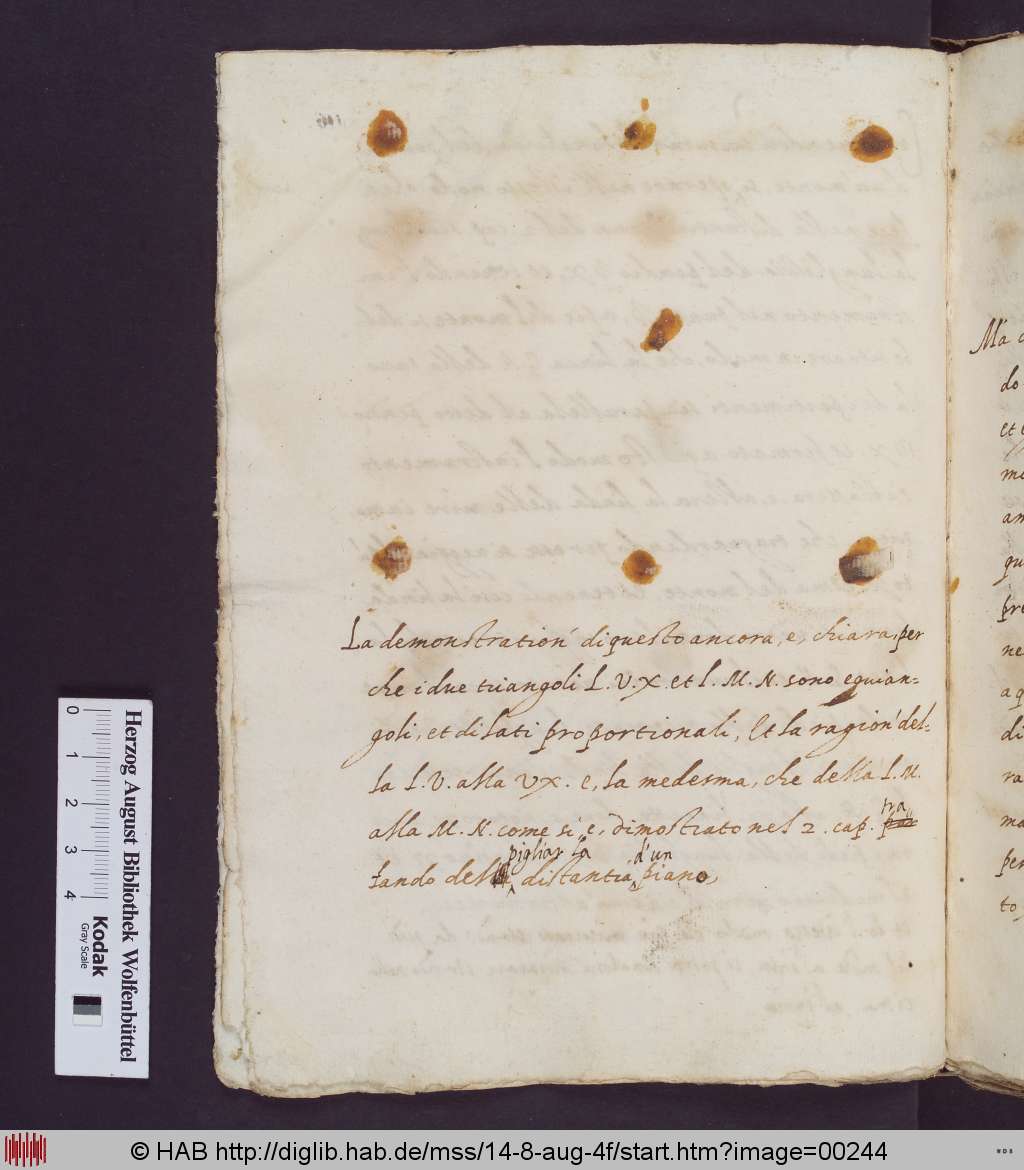 La demonstration' di questo ancora, e, chiara, per
che i due triangoli L. V. X. et L. M. N. sono equian=
goli, et di lati proportionali, Et la ragion' del=
la L. V. alla VX. e, la medesma, che della L. M.
alla M. N. come si e, dimostrato nel 2. cap. tra
tando del pigliar la distantia d'un piano,
Ma
do
et
me
an
qu
pre
ne
a q
di
ra
ma
per
to
0 1 2 3 4
Herzog August Bibliothek Wolfenbüttel
Kodak
Gray Scale
© HAB http://diglib.hab.de/mss/14-8-aug-4f/start.htm?image=00244